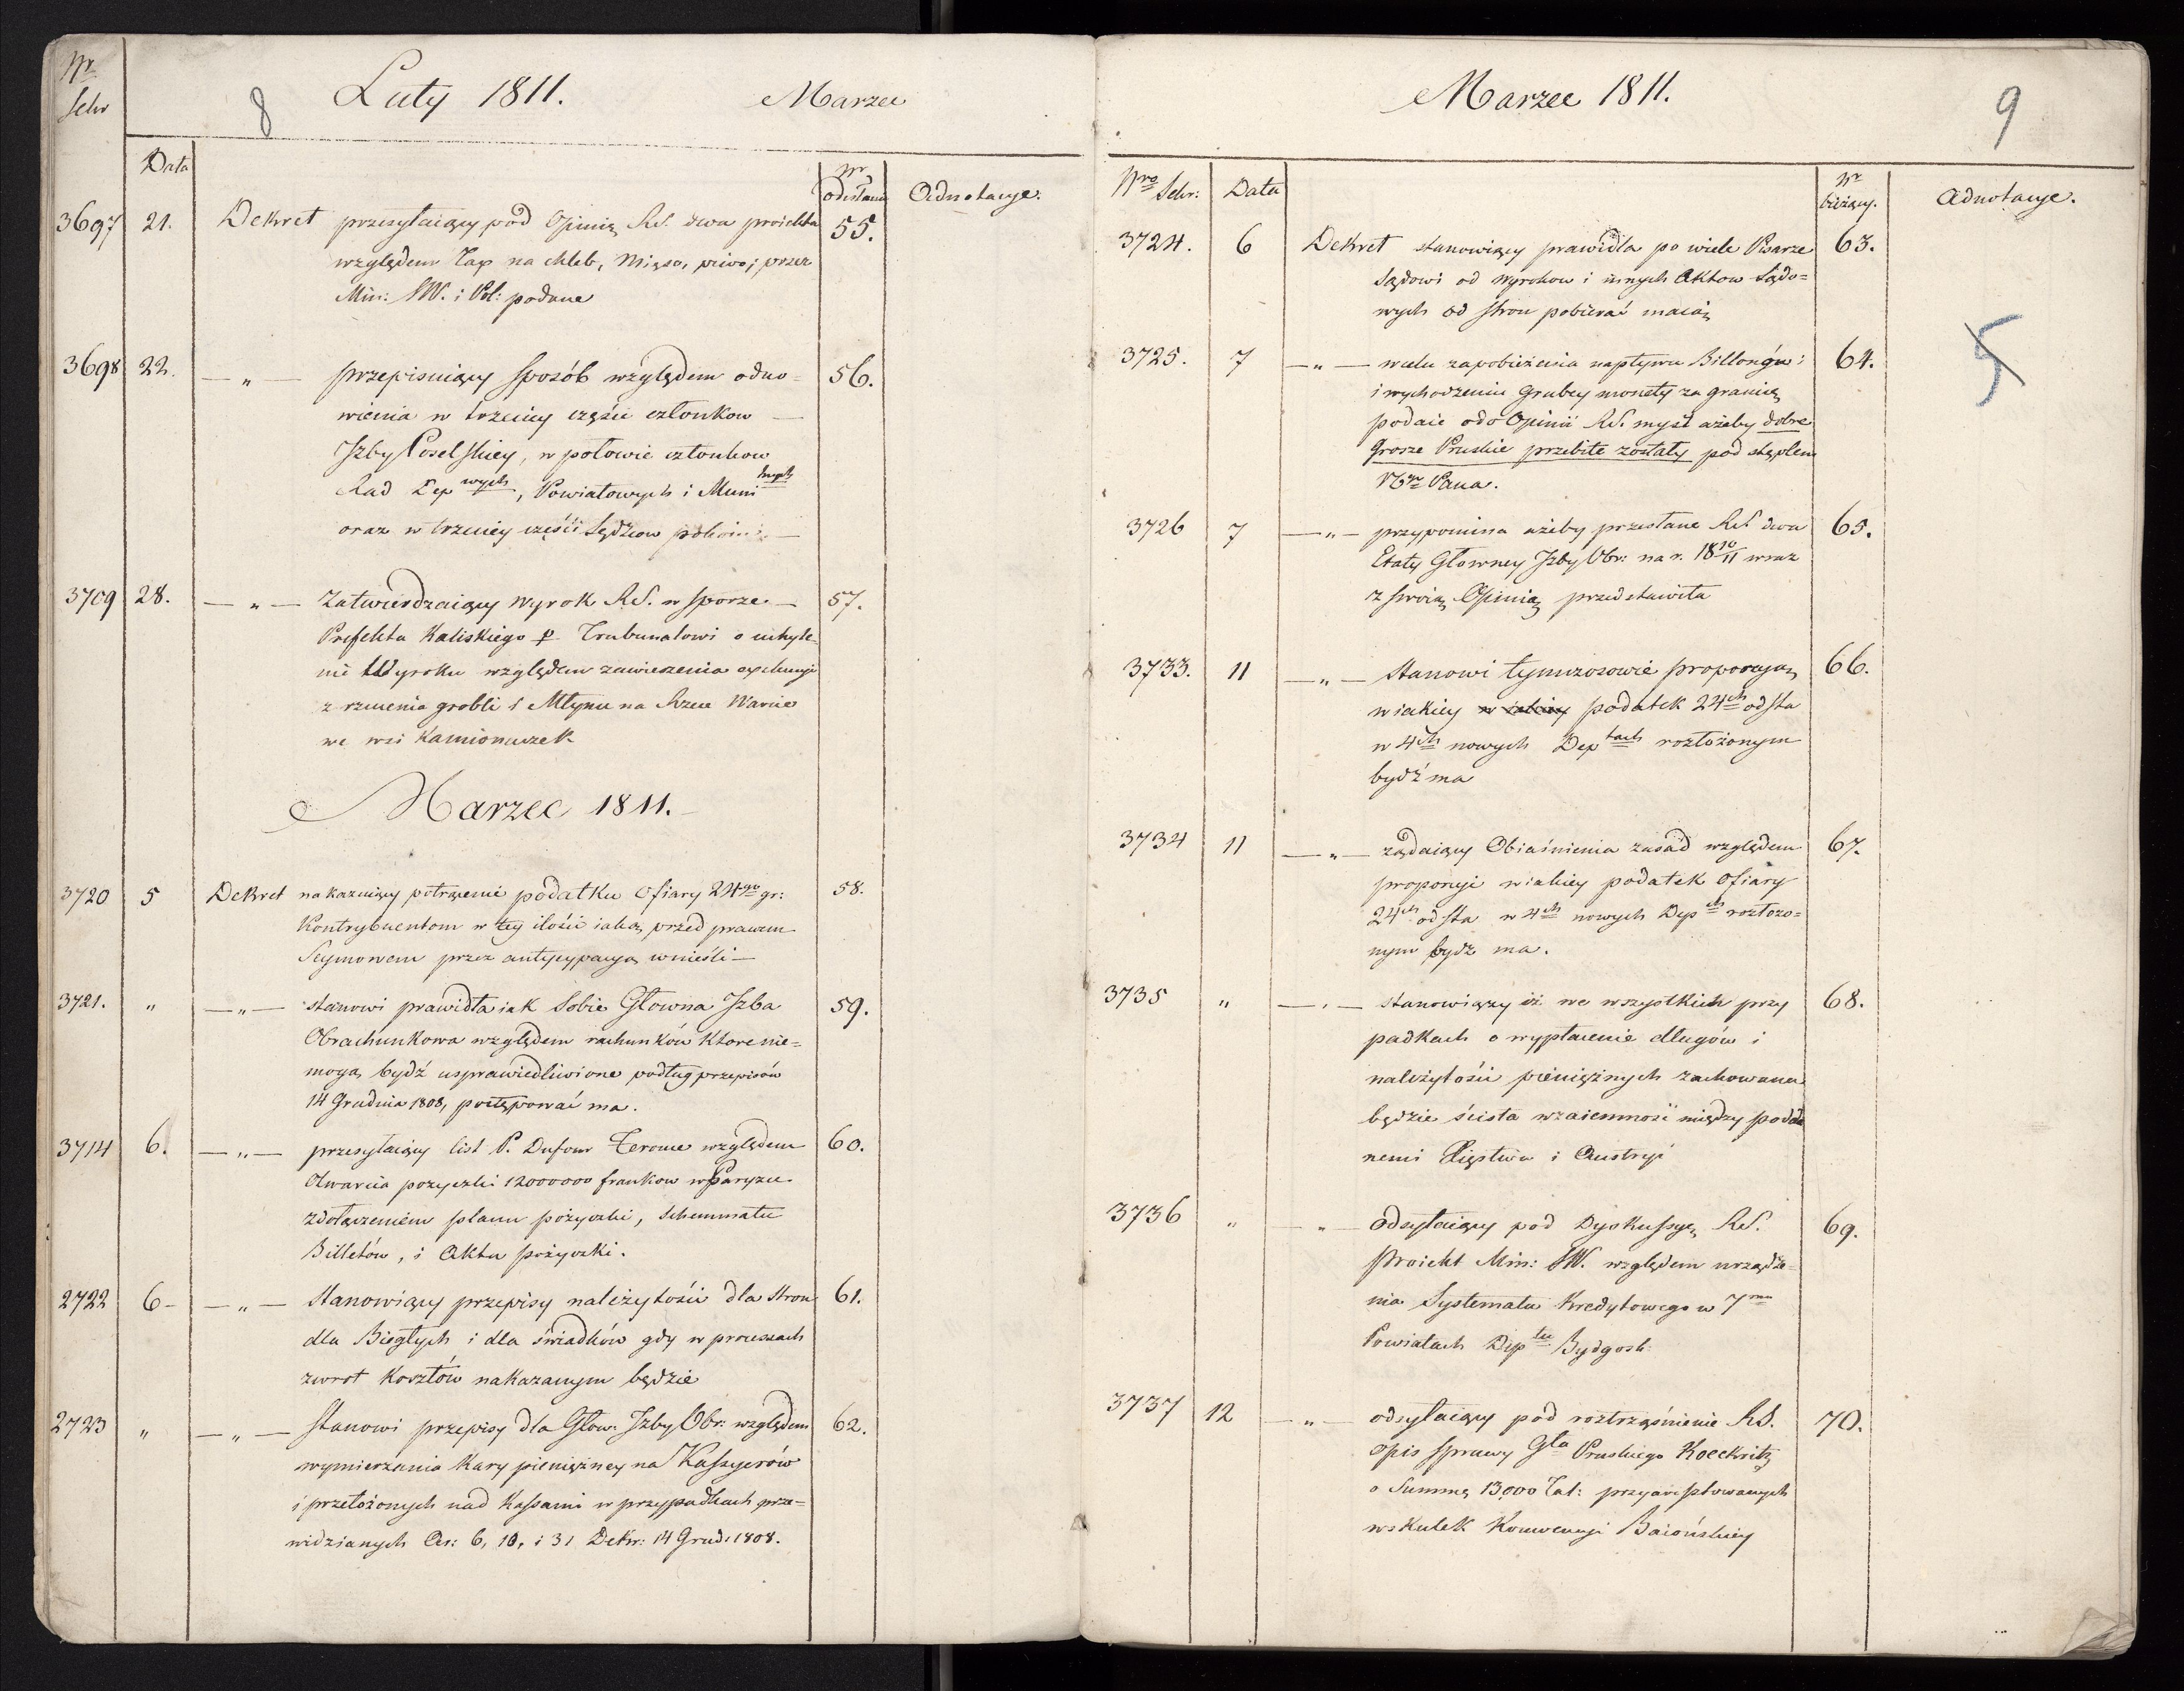 Nr
Sekr
8 Luty 1811. Marzec
Data
Nr
odesłania Adnotacye.
3697 21. Dekret przesyłaiący pod Opinią RS. dwa proiekta 55.
względem Tax na chleb, Mięso, piwo; przez
Min: SW. i Pol: podane
3698 22. — „ — przepisuiący sposób względem odno= 56.
wienia w trzeciey części członkow —
Izby Poselskiey, w połowie członkow
Rad Dep wych, Powiatowych i Muni
oraz w trzeciey części Sędziow pokoiu —
3709 28. — „ — Zatwierdzaiący Wyrok RS. w sporze — 57.
Prefekta Kaliskiego p. Trubunałowi o uchyle=
nie Wyroku względem zawieszenia exekucyi
z rzucenia grobli i Młynu na Rzece Warcie
we wsi Kamionaczek
Marzec 1811.
3720 5 Dekret nakazuiący potrącenie podatku Ofiary 24go gr: 58.
Kontrybuentom w tey ilości iaką przed prawem
Seymowem przez antycypacyą wnieśli —
3721. „ — „ — stanowi prawidła iak sobie Głowna Izba 59.
Obrachunkowa względem rachunków które nie=
mogą bydź usprawiedliwione podług przepisów
14 Grudnia 1808, postępować ma.
3714 6. — „ — przesyłaiący list P. Dufour względem 60.
Otwarcia pożyczki 12000000 frankow w Paryżu
z dołączeniem planu pożyczki, schemmatu
Billetów, i Aktu pożyczki.
2722 6 — „ — Stanowiący przepisy należytości dla stron 61.
dla Biegłych i dla świadków gdy w processach
zwrot kosztów nakazanym będzie
2723 „ — „ — Stanowi przepisy dla Głow: Izby Obr: względem 62.
wymierzania Kary pieniężney na Kassyerów
i przełożonych nad Kassami w przypadkach prze=
widzianych Ar: 6, 10, i 31 Dekr: 14 Grud: 1808.
Marzec 1811. 9
Nro Sekr: Data Nr
bieżący. Adnotacye.
3724. 6 Dekret stanowiący prawidła po wiele Pisarze 63.
Sądowi od wyrokow i innych Aktow Sądo=
wych od stron pobierać maią
5
3725. 7 — „ — w celu zapobieżenia napływu Billonów i 64.
i wychodzeniu Grubey monety za granicę
podaie odo Opinii RS. myśl ażeby dobre
Grosze Pruskie przebite zostały pod stęplem
Pana.
3726 7 — „ — przypomina ażeby przesłane RS dwa 65.
Etaty Głowney Izby Obr: na r. 18 10/11 wraz
z swoią Opinią przedstawiła
3733. 11 — „ — Stanowi tymczasowie proporcyą 66.
w iakiey podatek 24ch od sta
w 4ch nowych Dep tach rozłożonym
bydź ma
3734 11 — „ — żądaiący Obiaśnienia zasad względem 67.
proporcyi w iakiey podatek ofiary
24ch od sta w 4ch nowych Dep ch rozłożo=
nym bydz ma.
3735 „ — „ — stanowiący iż we wszystkich przy 68.
padkach o wypłacenie długów i
należytości pieniężnych zachowana
będzie ścisła wzaiemność między podda
nemi Xięstwa i Austryi
3736 „ — „ — odsyłaiący pod Dyskussyę RS. 69.
Proiekt Min: SW. względem urządze=
nia Systematu Kredytowego w 7miu
Powiatach Dep tu Bydgosk:
3737 12 — „ — odsyłaiący pod roztrząśnienie RS. 70.
opis sprawy Gła Pruskiego Koeckritz
o Summę 13,000 Tal: przyaresztowanych
wskutek Konwencyi Baiońskiey